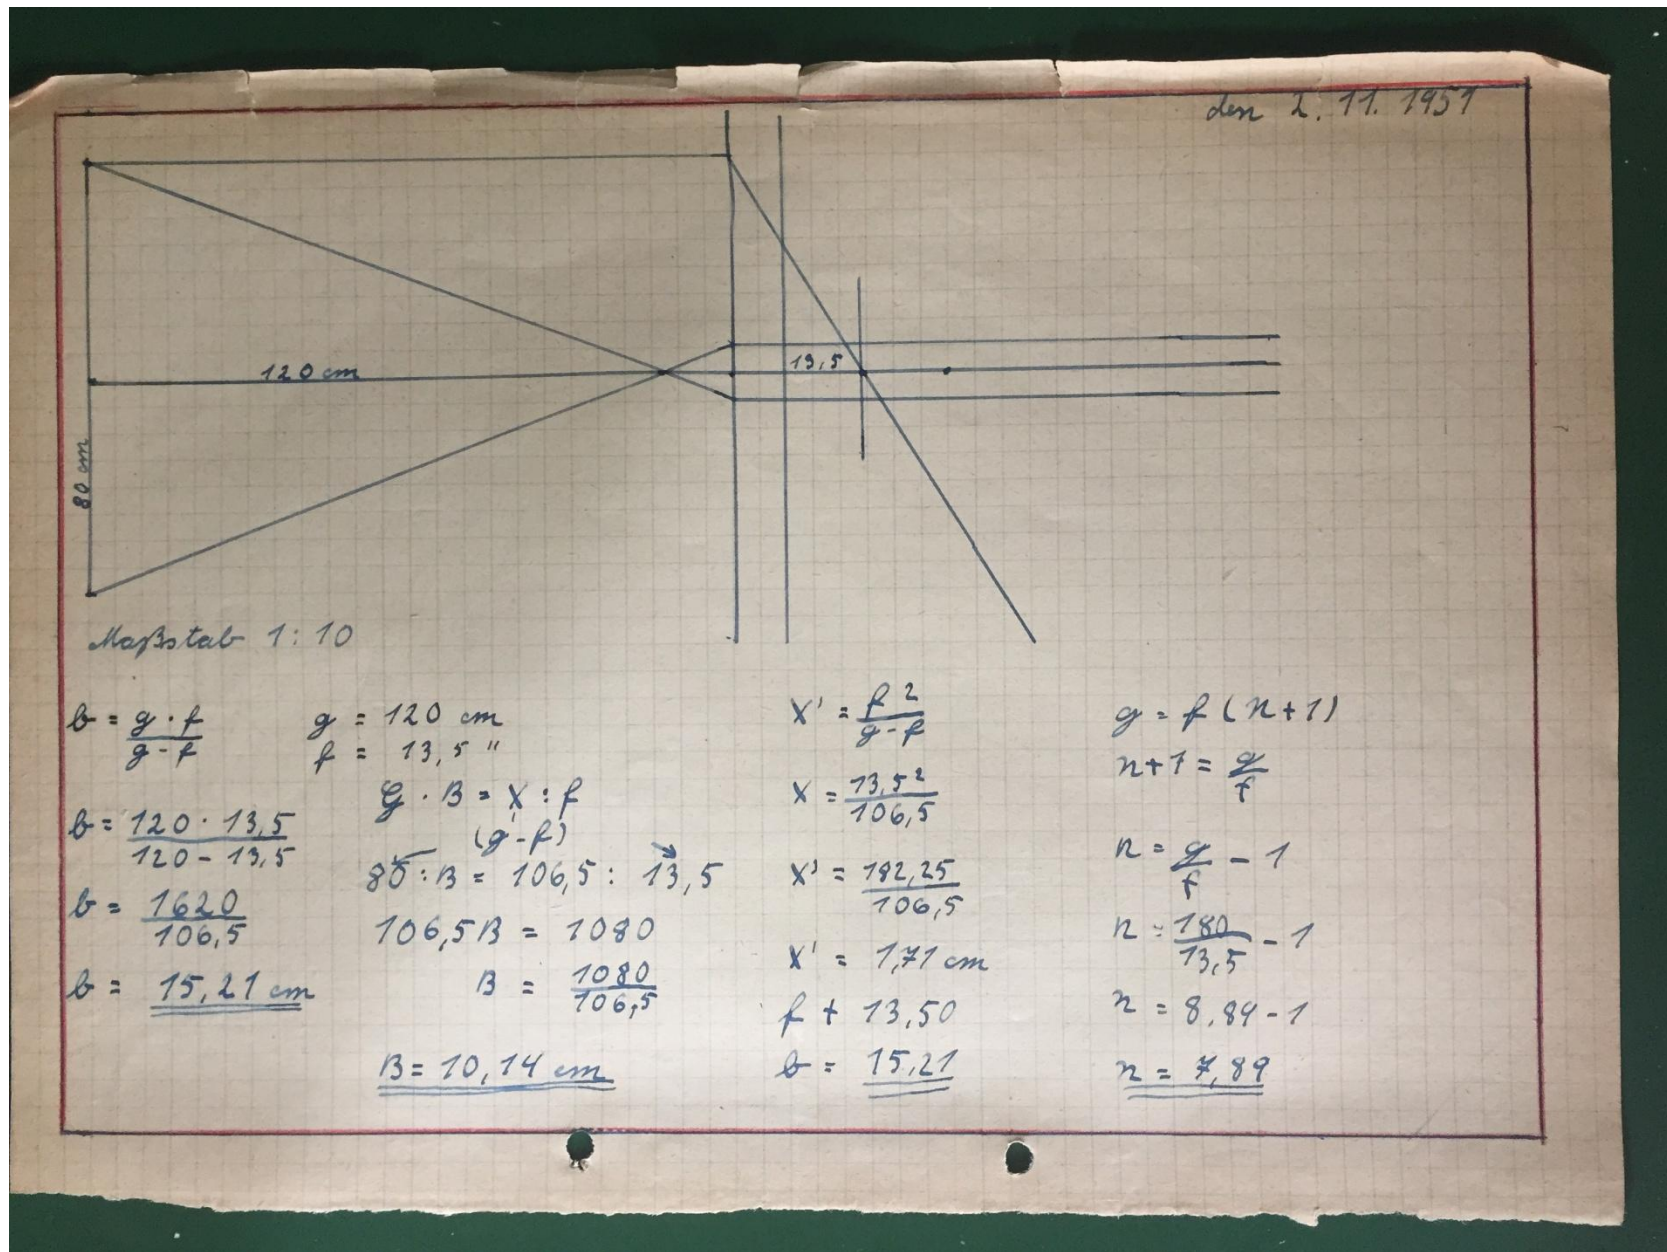 den 2. 11. 1951
120 cm
13,5
80 cm
Maßstab 1:10
b = g · f / g - f
b = 120 · 13,5 / 120 - 13,5
b = 1620 / 106,5
b = 15,21 cm
g = 120 cm
f = 13,5 "
G · B = X : f
(g - f)
80 : B = 106,5 : 13,5
106,5 B = 1080
B = 1080 / 106,5
B = 10,14 cm
X' = f² / g - f
X = 13,5² / 106,5
X' = 182,25 / 106,5
X' = 1,71 cm
f + 13,50
b = 15,21
g = f (n+1)
n+1 = g / f
n = g / f - 1
n = 180 / 13,5 - 1
n = 8,89 - 1
n = 7,89